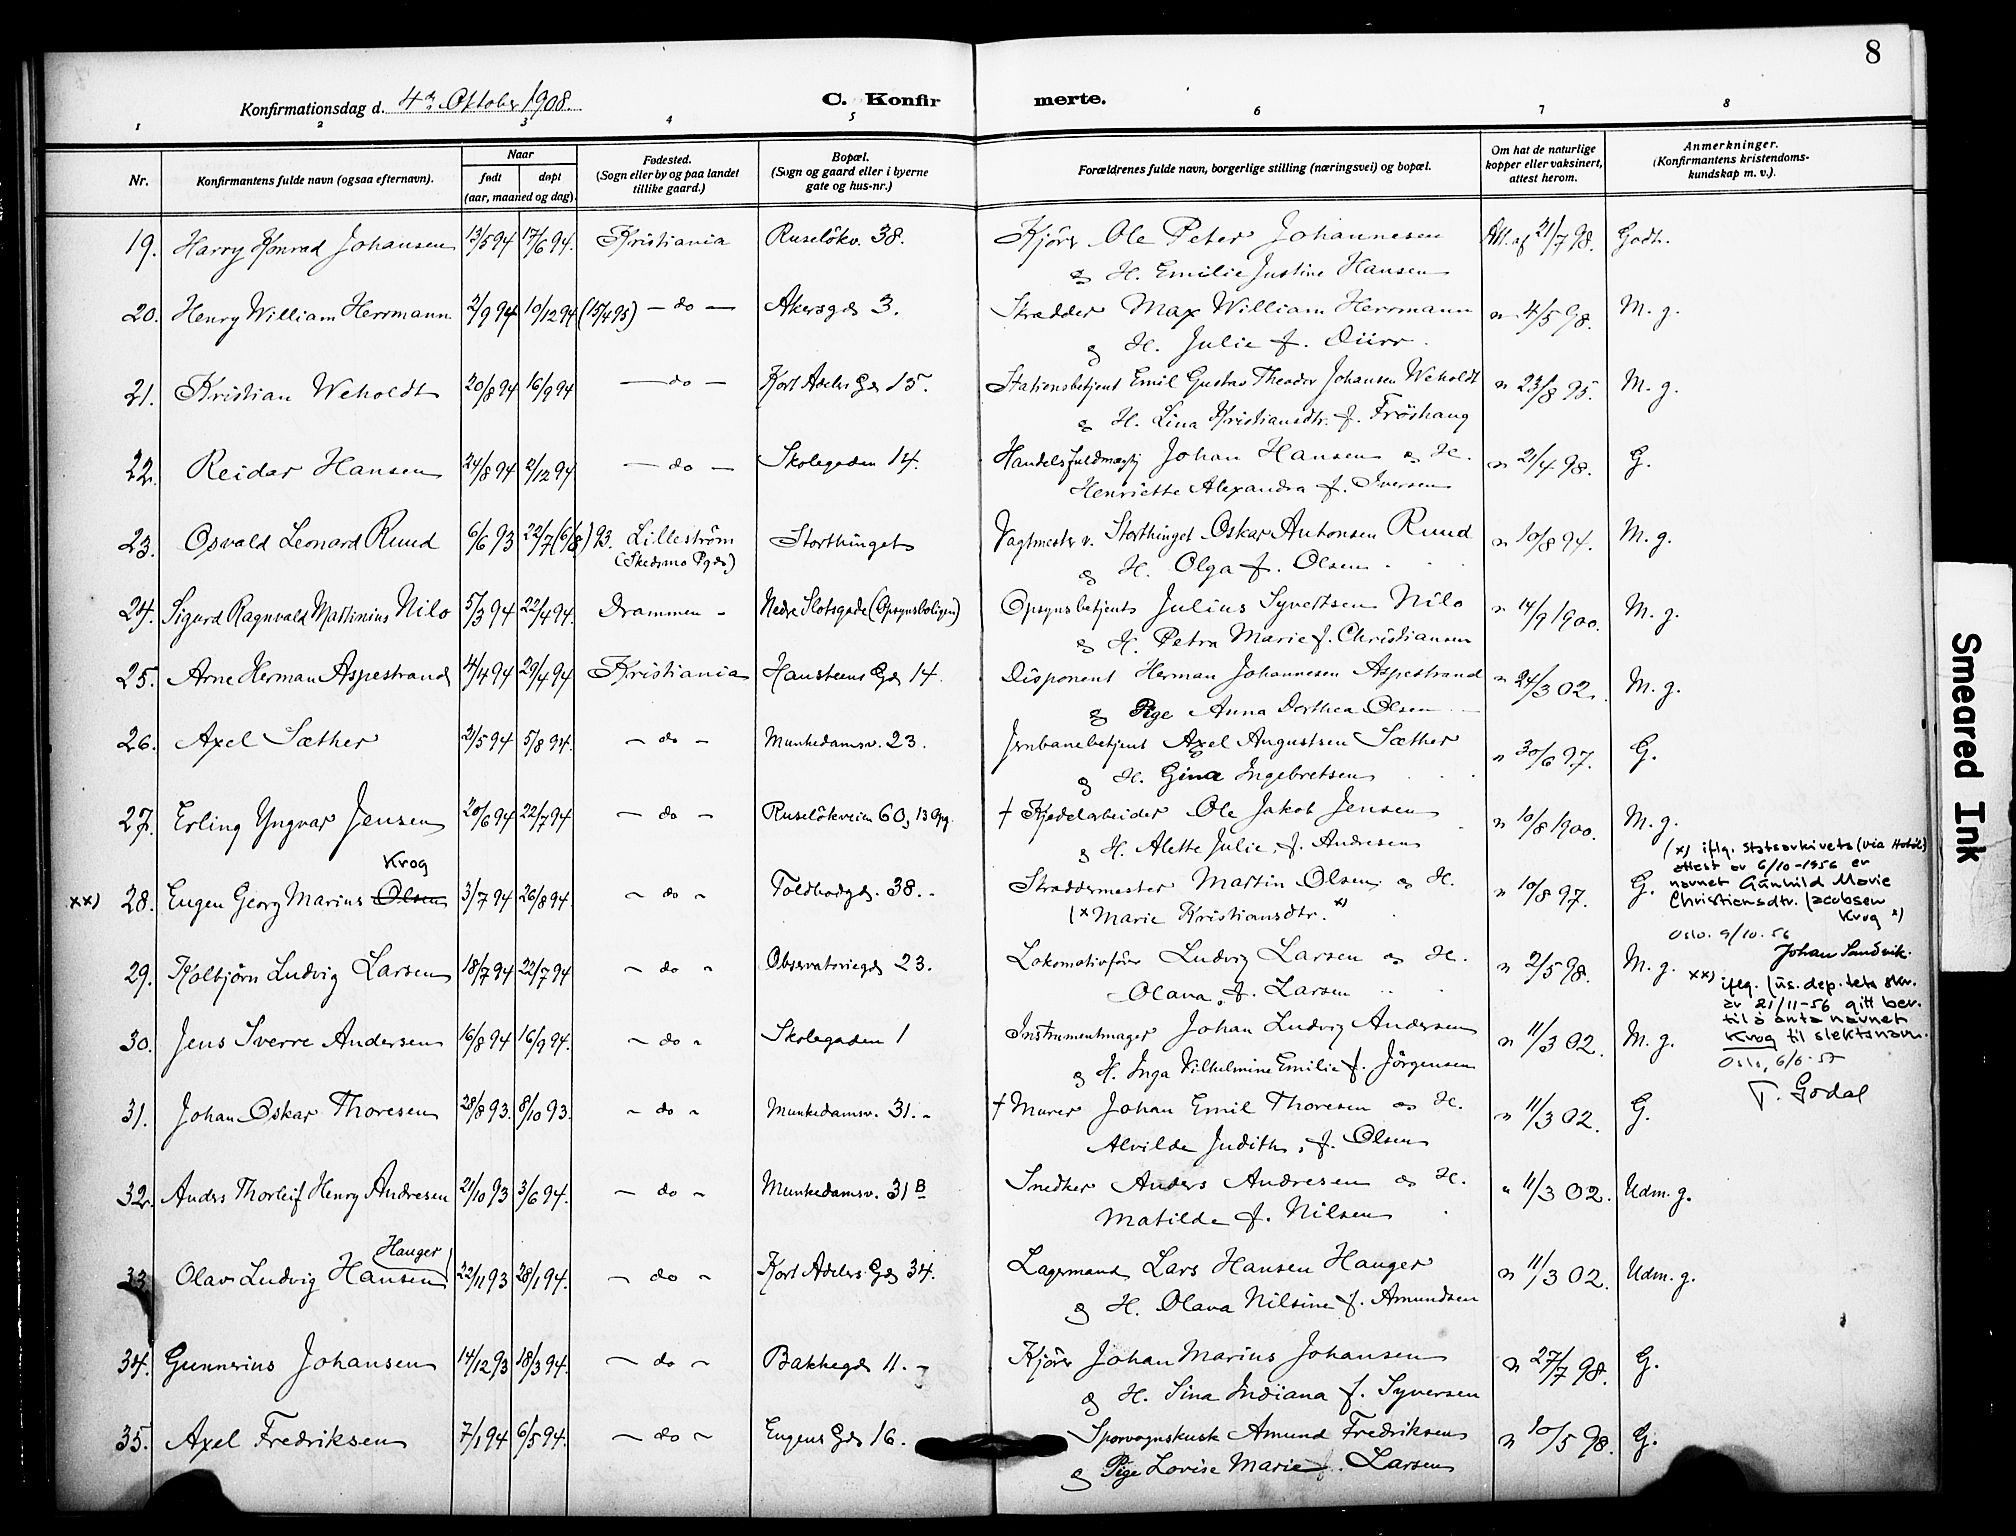 8
Konfirmationsdag d. 4de Oktober 1908.
C. Konfirmerte.
1 2 3 4 5 6 7 8
Nr.
Konfirmantens fulde navn (ogsaa efternavn).
Naar
født
døpt
(aar, maaned og dag).
Fødested.
(Sogn eller by og paa landet
tillike gaard.)
Bopæl.
(Sogn og gaard eller i byerne
gate og hus-nr.)
Forældrenes fulde navn, borgerlige stilling (næringsvei) og bopæl.
Om hat de naturlige
kopper eller vaksinert,
attest herom.
Anmerkninger.
(Konfirmantens kristendoms-
kundskap m. v.).
19. Harry Konrad Johansen 13/5 94 17/6 94. Kristiania Ruselökv. 38. Kjörer Ole Peter Johannesen Att. af 21/7 98. Godt.
& H. Emilie Justine Hansen
20. Henry William Herrmann 2/9 94 10/12 94 (15/4 95) — do — Akersgd 3. Skrædder Max William Herrmann " 4/5 98. M. g.
& H. Julie f. Dürr.
21. Kristian Weholdt 20/8 94 16/9 94 — do — Kort Adelers Gd 15. Stationsbetjent Emil Gustav Theodor Johansen Weholdt " 23/8 95. M. g.
& H. Lina Kristiansdtr. f. Fröshaug
22. Reidar Hansen 24/8 94 2/12 94 — do — Skolegaden 14. Handelsfuldmægtig Johan Hansen & H. " 21/4 98. G.
Henriette Alexandra f. Iversen
23. Osvald Leonard Ruud 6/6 93 22/7 (6/8) 93. Lilleström Storthinget Vagtmester v. Storthinget Oskar Antonsen Ruud " 10/8 94. M. g.
(Skedsmo Pgd) & H. Olga f. Olsen
24. Sigurd Ragnvald Mathinius Nilo 5/3 94 22/4 94. Drammen - Nedre Slotsgade (Opsynsboligen) Opsynsbetjent Julius Syvertsen Nilo " 14/9 1900. M. g.
& H. Petra Marie f. Christiansen
25. Arne Herman Aspestrand 4/4 94 29/4 94 Kristiania Hansteens Gd 14. Disponent Herman Johannesen Aspestrand " 24/3 02. M. g.
& Pige Anna Dorthea Olsen
26. Axel Sæther 2/5 94 5/8 94. - do - Munkedamsv. 23. Jernbanebetjent Axel Augustsen Sæther " 30/6 97. G.
& H. Gina Ingebretsen
27. Erling Yngvar Jensen 20/6 94 22/7 94 - do - Ruselökveien 60, 13 Opg. † Kjedelarbeider Ole Jakob Jensen " 10/8 1900. M. g.
& H. Alette Julie, f. Andresen
Krog
xx) 28. Eugen Georg Marius Olsen 3/7 94 26/8 94. - do - Toldbodgd. 38. - Skræddermester Martin Olsen & H. " 10/8 97. G.
(x Marie Kristiansdtr. x)
(x) iflg. Statsarkivets (via Hotel)
attest av 6/10-1956 er
navnet Gunhild Marie
Christiansdtr. Jacobsen
Krog x)
Oslo. 9/10. 56
Johan Sandvik.
29. Kolbjörn Ludvig Larsen 18/7 94 22/7 94 - do - Observatoriegd 23. Lokomotivförer Ludvig Larsen & H. " 2/5 98. M. g.
Olava, f. Larsen
xx) iflg. Jus. dep.tets skr.
av 21/11-56 gitt bev.
til å anta navnet
Krog til slektsnavn.
Oslo, 6/6-57
T. Godal
30. Jens Sverre Andersen 16/8 94 16/9 94. - do - Skolegaden 1 Instrumentmager Johan Ludvig Andersen " 11/3 02. M. g.
& H. Inga Vilhelmine Emilie f. Jörgensen
31. Johan Oskar Thoresen 28/8 93. 8/10 93. - do - Munkedamsv. 31. - † Murer Johan Emil Thoresen & H. " 11/3 02. G.
Alvilde Judith, f. Olsen
32. Anders Thorleif Henry Andresen 2/10 93 3/6 94. - do - Munkedamsv. 31 B Snedker Anders Andresen & H. " 11/3 02. Udm. g.
Matilde f. Nilsen
Hauger
33. Olav Ludvig Hansen 22/11 93 28/1 94. - do - Kort Adelers Gd 34. Lagermand Lars Hansen Hauger " 11/3 02. Udm. g.
& H. Olava Nilsine f. Amundsen
34. Gunnerius Johansen 14/12 93 18/3 94. - do - Bakkegd 11. - Kjörer Johan Marius Johansen " 27/7 98. G.
& H. Sina Indiana f. Syversen
35. Axel Fredriksen 7/1 94 6/5 94. - do - Eugens Gd 16. Sporvognskusk Amund Fredriksen " 10/5 98. G.
& Pige Lovise Marie Larsen
Smeared Ink